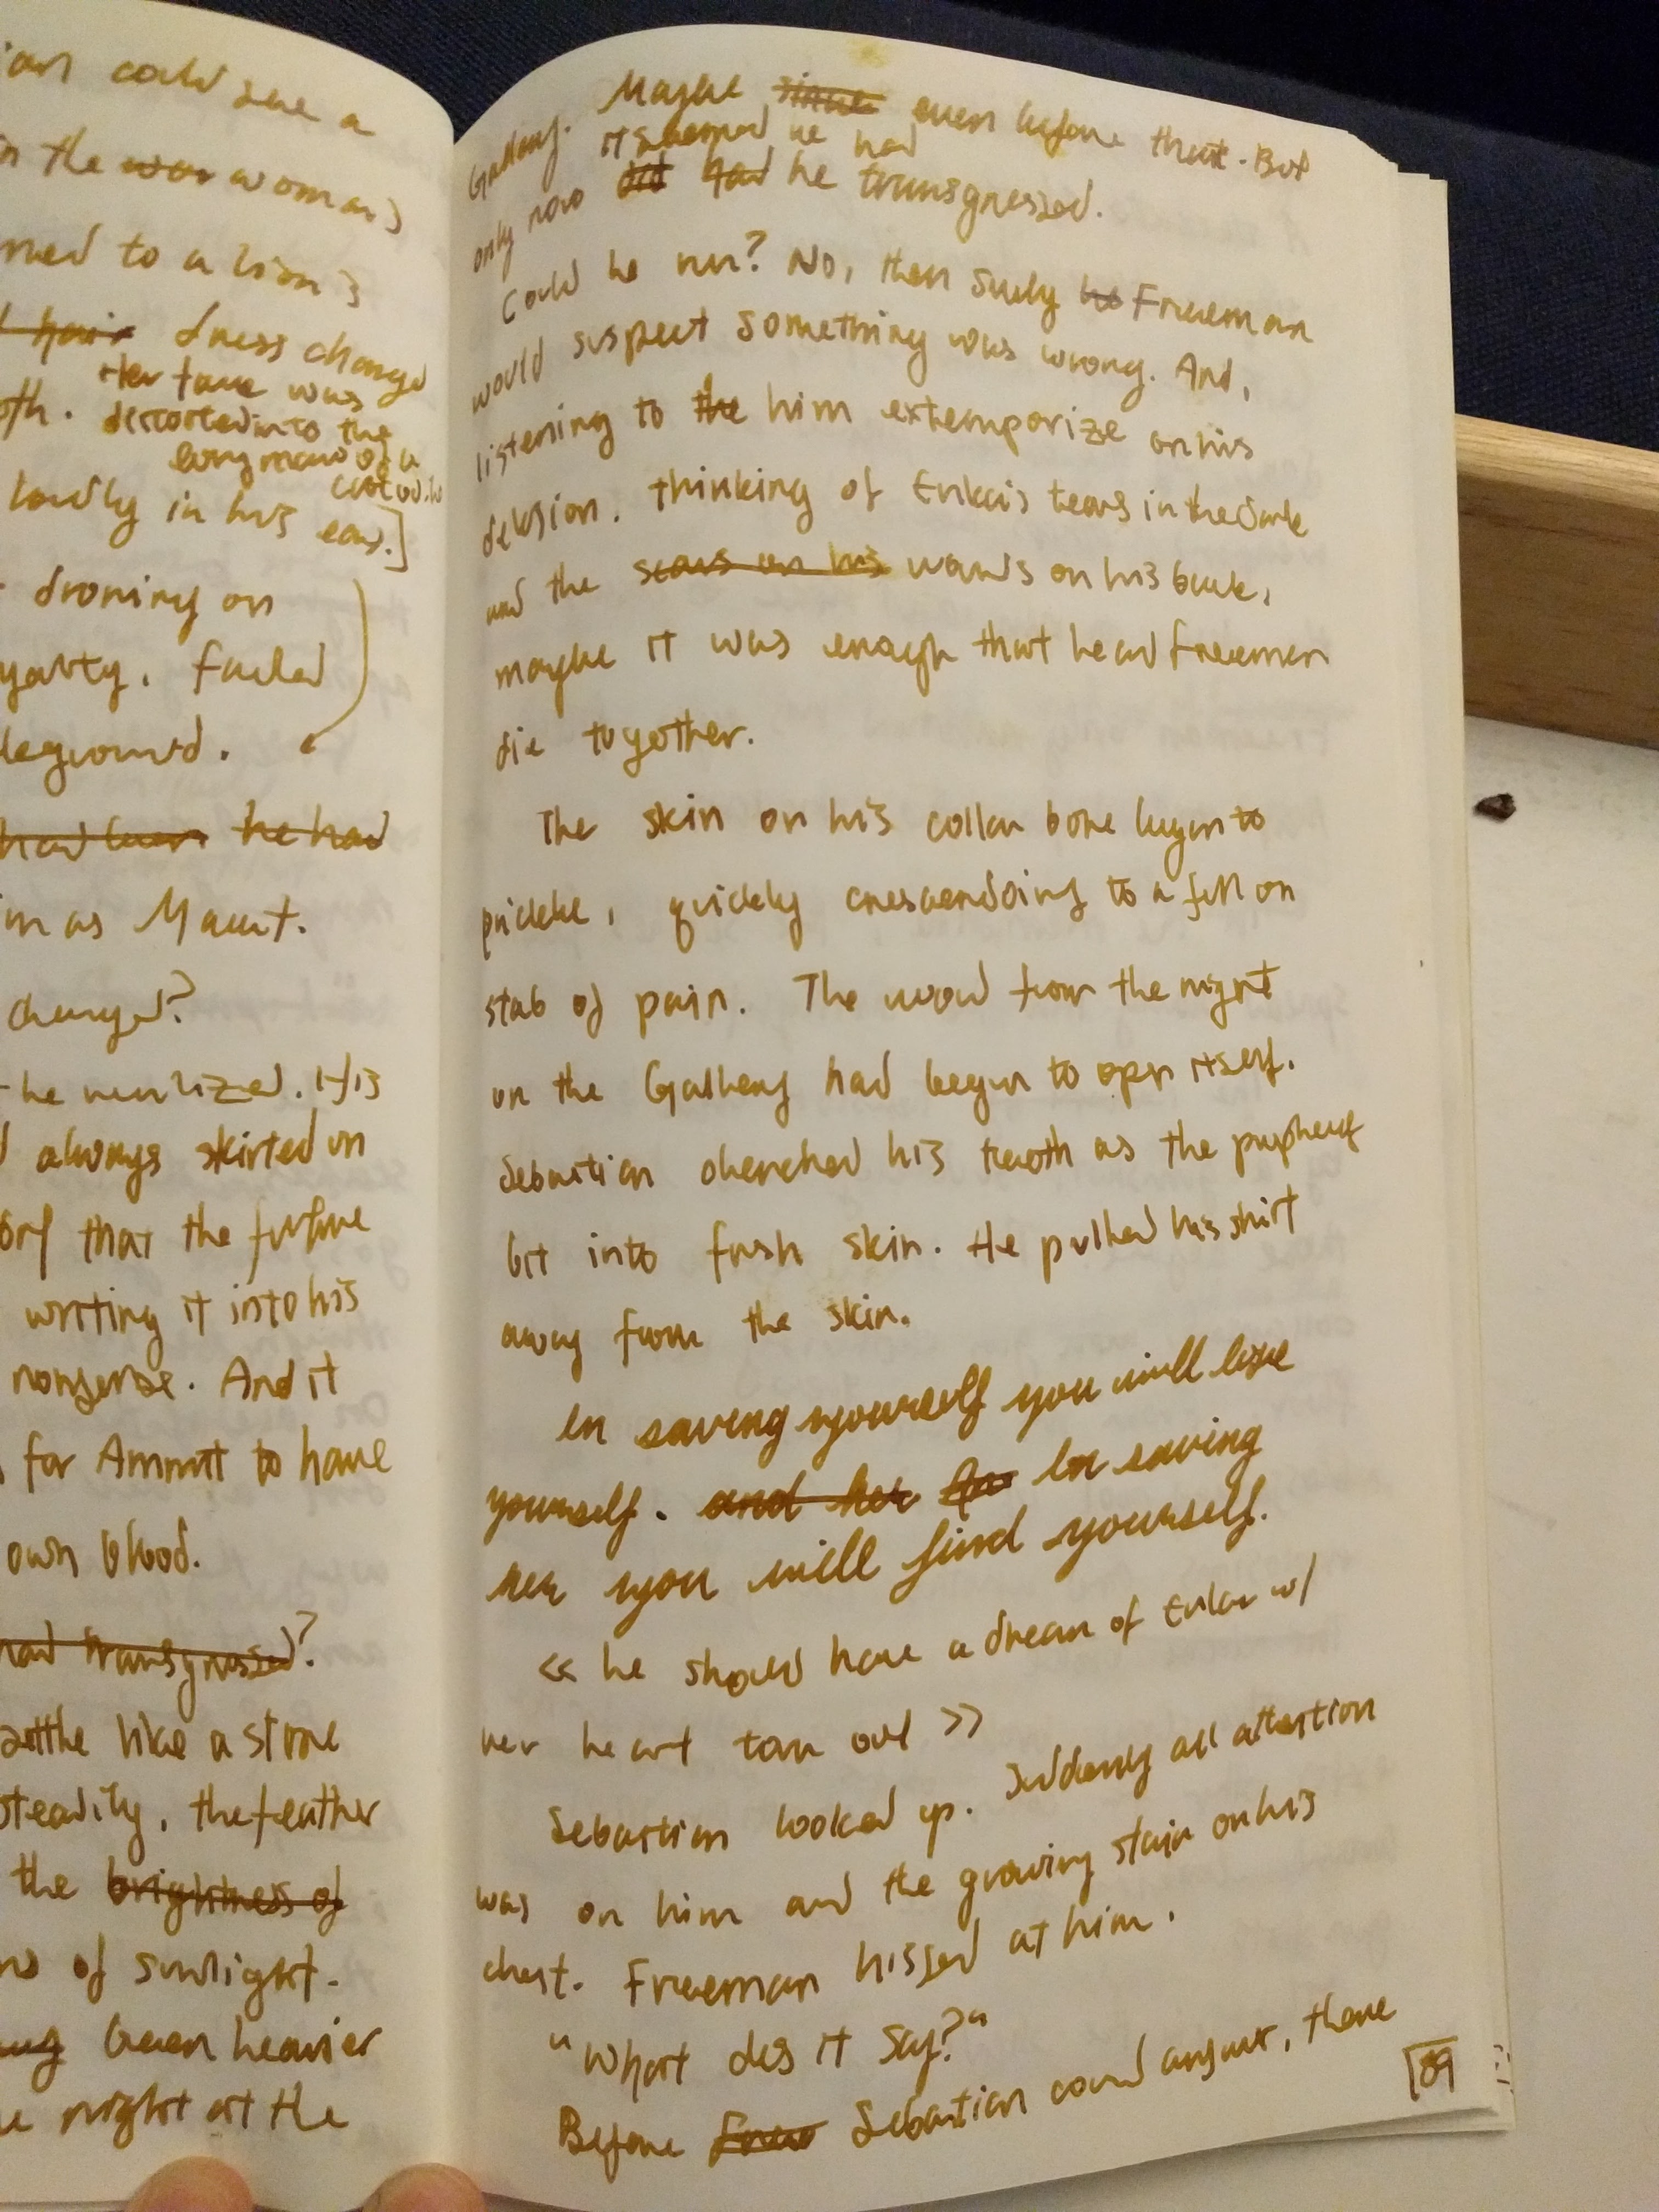 ian could see a
in the war woman's
rned to a lion's
hair dress changed
Her face was
oth. distorted into the
long maw of a
loudly in his ear.]
droning on
yalty. Failed
leground.
had been he had
im as Maut.
changed?
he realized. His
always skirted on
ory that the future
writing it into his
nonsense. And it
for Ammit to have
own blood.
had transgressed?
settle like a stone
steadily, the feather
the brightness of
of sunlight.
been heavier
night at the
Gallery. Maybe since even before that. But
it seemed he had
only now did had he transgressed.
Could he run? No, then surely he Freeman
would suspect something was wrong. And,
listening to the him extemporize on his
delusion. Thinking of Erika's tears in the dark
and the scars on his words on his back,
maybe it was enough that he and Freeman
die together.
The skin on his collar bone began to
prickle, quickly crescendoing to a full on
stab of pain. The word from the night
on the Gallery had begun to open itself.
Sebastian clenched his teeth as the prophecy
bit into fresh skin. He pulled his shirt
away from the skin.
In saving yourself you will lose
yourself. and her In saving
her you will find yourself.
<< he should have a dream of Erika w/
her heart torn out >>
Sebastian looked up. Suddenly all attention
was on him and the growing stain on his
chest. Freeman hissed at him.
"What does it say?"
Before Free Sebastian could answer, there
89